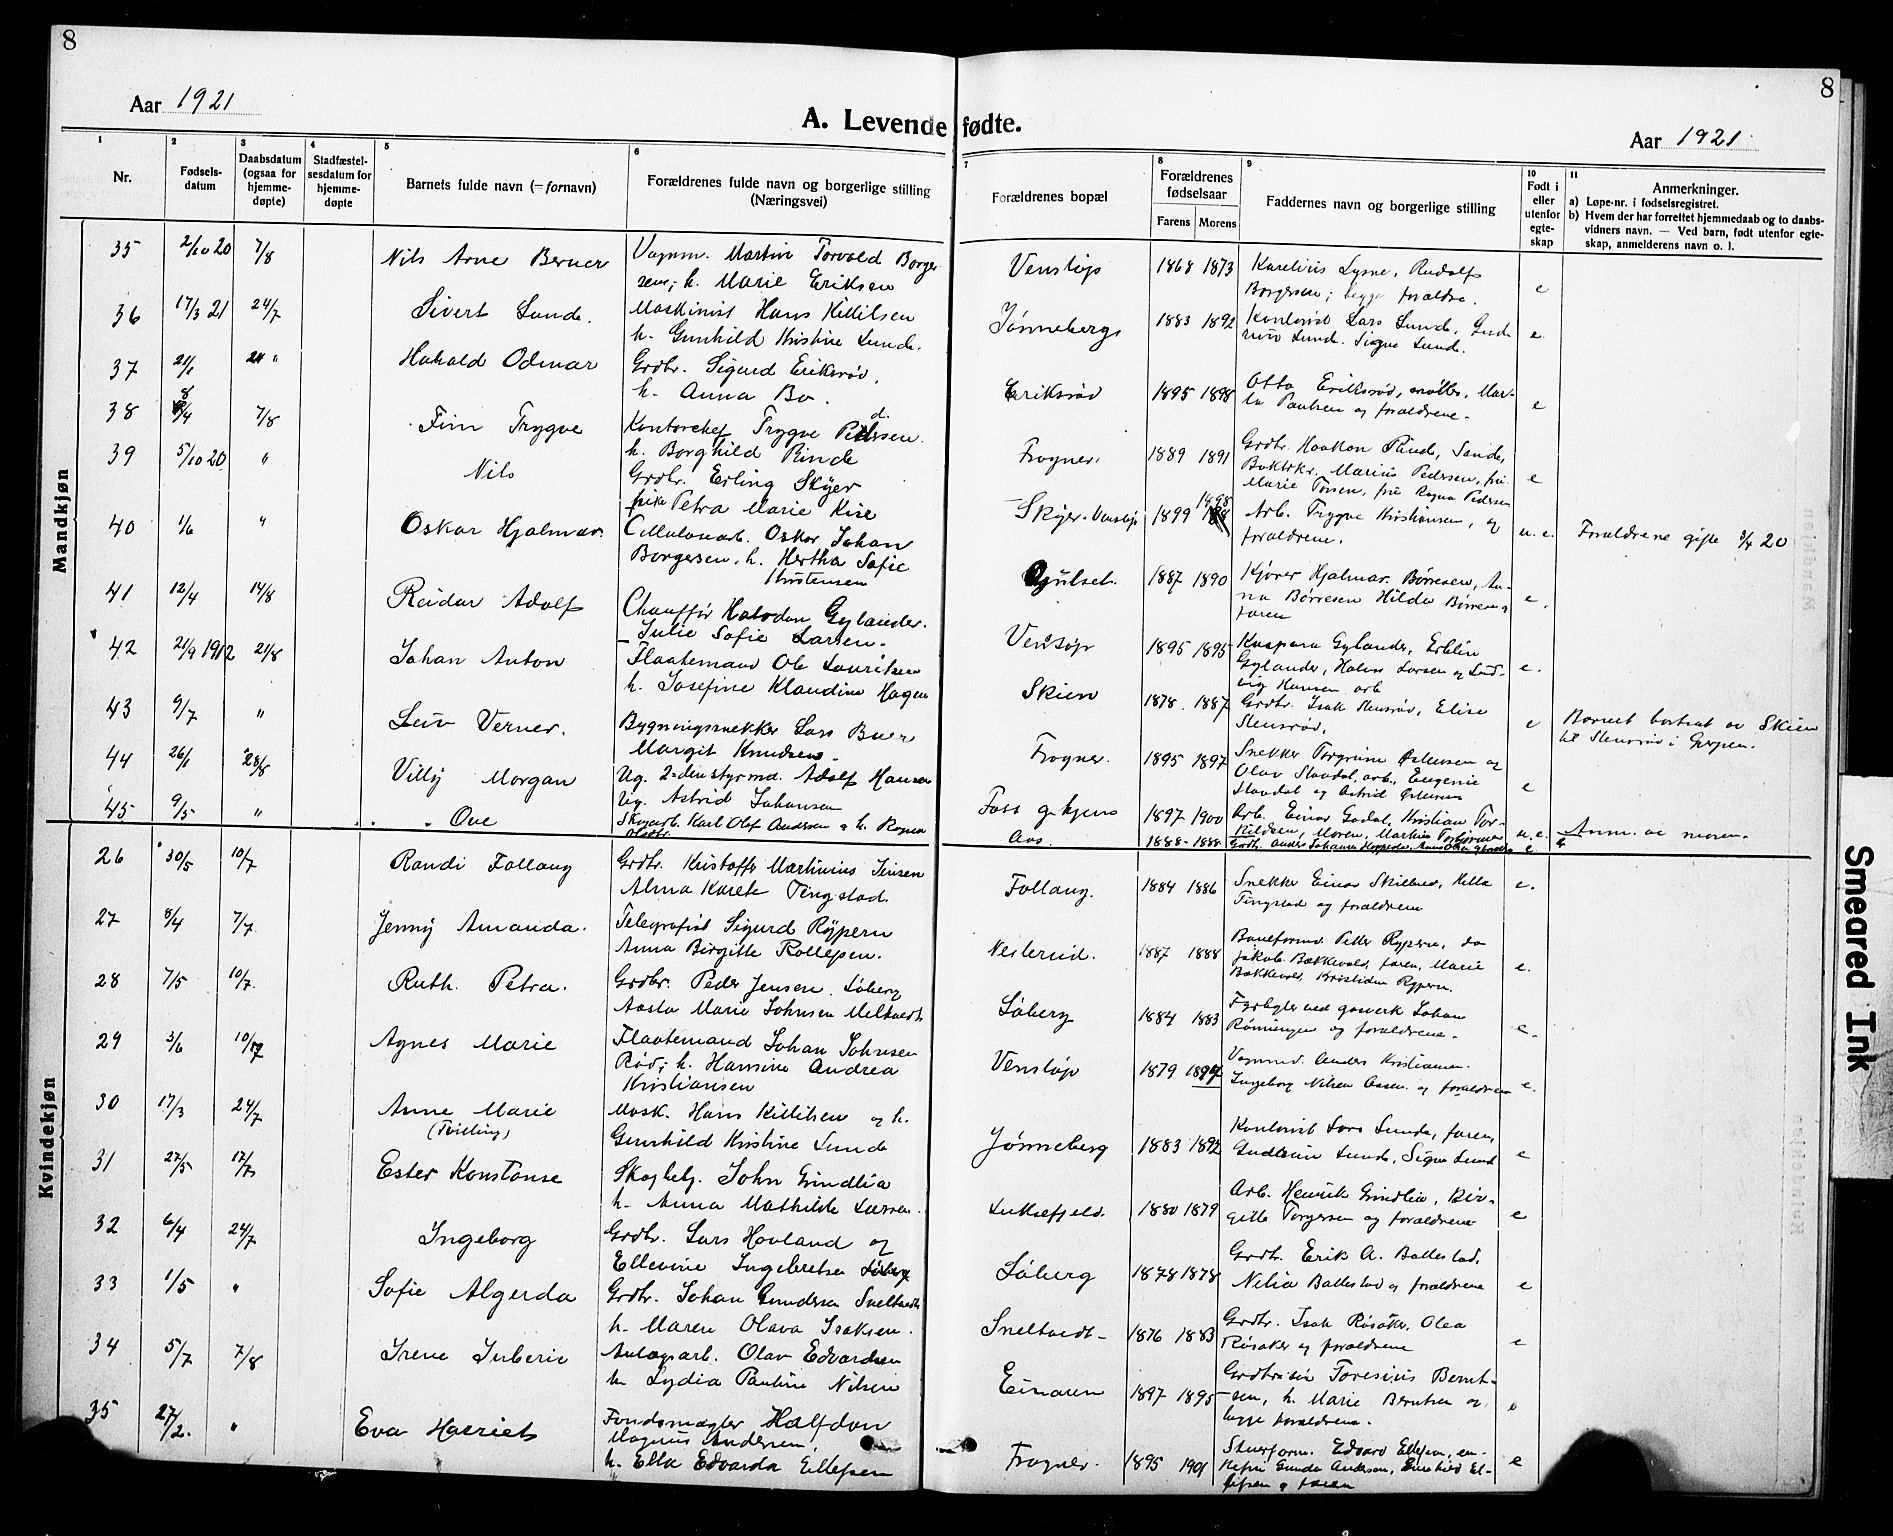 8
8
Aar 1921
A. Levende fødte.
Aar 1921.
1 Nr.
2 Fødsels-datum
3 Daabsdatum (ogsaa for hjemme-døpte)
4 Stadfæstel-sesdatum for hjemme-døpte
5 Barnets fulde navn (= fornavn)
6 Forældrenes fulde navn og borgerlige stilling (Næringsvei)
7 Forældrenes bopæl
8 Forældrenes fødselsaar Farens Morens
9 Faddernes navn og borgerlige stilling
10 Født i eller utenfor egte-skap
11 Anmerkninger.
a) Løpe-nr. i fødselsregistret.
b) Hvem der har forrettet hjemmedaab og to daabs-vidners navn. — Ved barn, født utenfor egte-skap, anmelderens navn o. l.
Mandkjøn
35 2/10 20 7/8 Nils Arne Berner Vognm. Martin Torvald Borger
sen; h. Marie Eriksen Venstøp 1868 1873 Karelius Lysne, Rudolf
Borgersen; begge forældre. e
36 17/3 21 24/7 Sivert Lunde. Maskinist Hans Killilsen
h. Gunhild Kristine Lunde. Jønneberg 1883 1892 Kontorist Lars Lunde, Gud
run Lunde. Signe Lunde. e.
37 21/1 24 " Harald Odmar Grdbr. Sigurd Eriksrød,
h. Anna Bo. Eriksrød 1895 1898 Otto Eriksrød, møller, Mar-
ta Paulsen og forældrene. e
38 8/4 7/8 Finn Trygve Kontorchef Trygve Pedersen
h. Borghild Rinde Frogner. 1889 1891 Grdbr. Haakon Rinde, Sande,
Boktrkr. Marius Pedersen, fru
Marie Tørsen, fru Ragna Pedersen e
39 5/10 20 " Nils Grdbr. Erling Skyer
pike Petra Marie Kise Skyer-Venstøp 1899 1898 Arb. Trygve Kristiansen, og
forældrene. u. e. Forældrene gifte 3/4 20
40 1/6 " Oskar Hjalmar. Cellulosearb. Oskar Johan
Borgersen, h. Hertha Sofie
Kristensen Gulset. 1887 1890 Kjører Hjalmar Børresen, An-
na Børresen Hilda Børresen
faren e.
41 12/4 14/8 Reidar Adolf Chauffør Halvdan Gylander.
Julie Sofie Larsen. Venstøp 1895 1895 Kaspara Gylander, Erling
Gylander, Halvor Larsen og Lud-
vig Hansen arb e.
42 21/9 1912 21/8 Johan Anton Flaatemand Ole Lauritsen
h. Josefine Klaudine Hagen Skien 1878. 1887 Grdbr. Isak Stensrød, Elise
Stensrød. e Barnet bortsat av Skien
til Stensrød i Gjerpen.
43 9/7 " Leiv Verner. Bygningssnekker Lars Buer
Margit Knudsen. Frogner. 1895 1897 Snekker Torgrim Østensen og
Olav Slaadal, arb., Eugenie
Slaadal og Astrid e
44 26/1 28/8 Villy Morgan Ug. 2-den styrmd. Adolf Hansen
Ug. Astrid Johansen Foss gjens 1897 1900 Arb. Einar Godal, Kristian Tor-
kildsen, Moren, Martha Torbjørnsen u. e. Anm. av moren.
45 9/5 " Ove Skogarb. Karl Olaf Andersen & h. Ragna
Aas. 1888- 1888 Grdbr. Anders Johannesen e
Kvindekjøn
26 30/5 10/7 Randi Follaug Grdbr. Kristoffer Martinius Jensen
Alma Karete Tingstad. Follaug. 1884 1886 Snekker Einar Skilbred, Hilla
Tingstad og forældrene e.
27 8/4 7/7. Jenny Amanda. Telegrafist Sigurd Rypern
Anna Birgitte Rollefsen. Nesterud. 1887 1888 Baneformd. Peter Rypern, do
Jakob Bækkevold, faren, Marie
Bækkevold, Kristiane Rypern. e.
28 7/5 10/7. Ruth. Petra. Grdbr. Peder Jensen. Løberg
Aasta Marie Johnsen Meltvedt Løberg 1884 1883 Fyrbøter ved gasverk Johan
Rønningen og forældrene. e.
29 3/6 10/7 Agnes Marie Flaatemand Johan Johnsen
Rød; h. Hansine Andrea
Kristiansen Venstøp 1879 1894 Vognmd. Anders Kristiansen.
Ingeborg Nilsen Aasen. og forældrene e.
30 17/3 24/7 Anne Marie
(Tvilling) Mask. Hans Killilsen og h.
Gunhild Kristine Lunde Jønneberg 1883 1892 Kontorist Lars Lunde, faren,
Gudrun Lunde, Signe Lunde e
31 27/5 17/7 Ester Konstanse Skogbetj. John Grindlia
h. Anna Mathilde Larsen. Luksefjeld. 1880 1879 Arb. Henrik Grindlia, Bir-
gitte Torgersen og forældrene e
32 6/4 24/7 Ingeborg Grdbr. Lars Hovland og
Ellevine Ingebretsen Løberg Løberg 1878 1878 Grdbr. Erik A. Ballestad,
Nilia Ballestad og forældrene e
33 1/5 " Sofie Algerda Grdbr. Johan Gundersen Sneltvedt
h. Maren Olava Isaksen. Sneltvedt- 1876 1883 Grdbr. Isak Røsaker, Olea
Røsaker og forældrene e
34 5/7 7/8 Irene Inberie Anlægsarb. Olav Edvardsen
h. Lydia Pauline Nilsen Einaren 1897 1895 Grdbr. Toresius Bernt-
sen, h. Marie Berntsen og
begge forældrene. e
35 27/2. " Eva Harriet Fondsmægler Halfdan
Magnus Andersen,
h. Ella Edvarda Ellefsen Frogner. 1895 1901 Stuerform. Edvard Ellefsen, en-
kefru Gunda Andersen, El-
lefsen & faren e
Smeared Ink